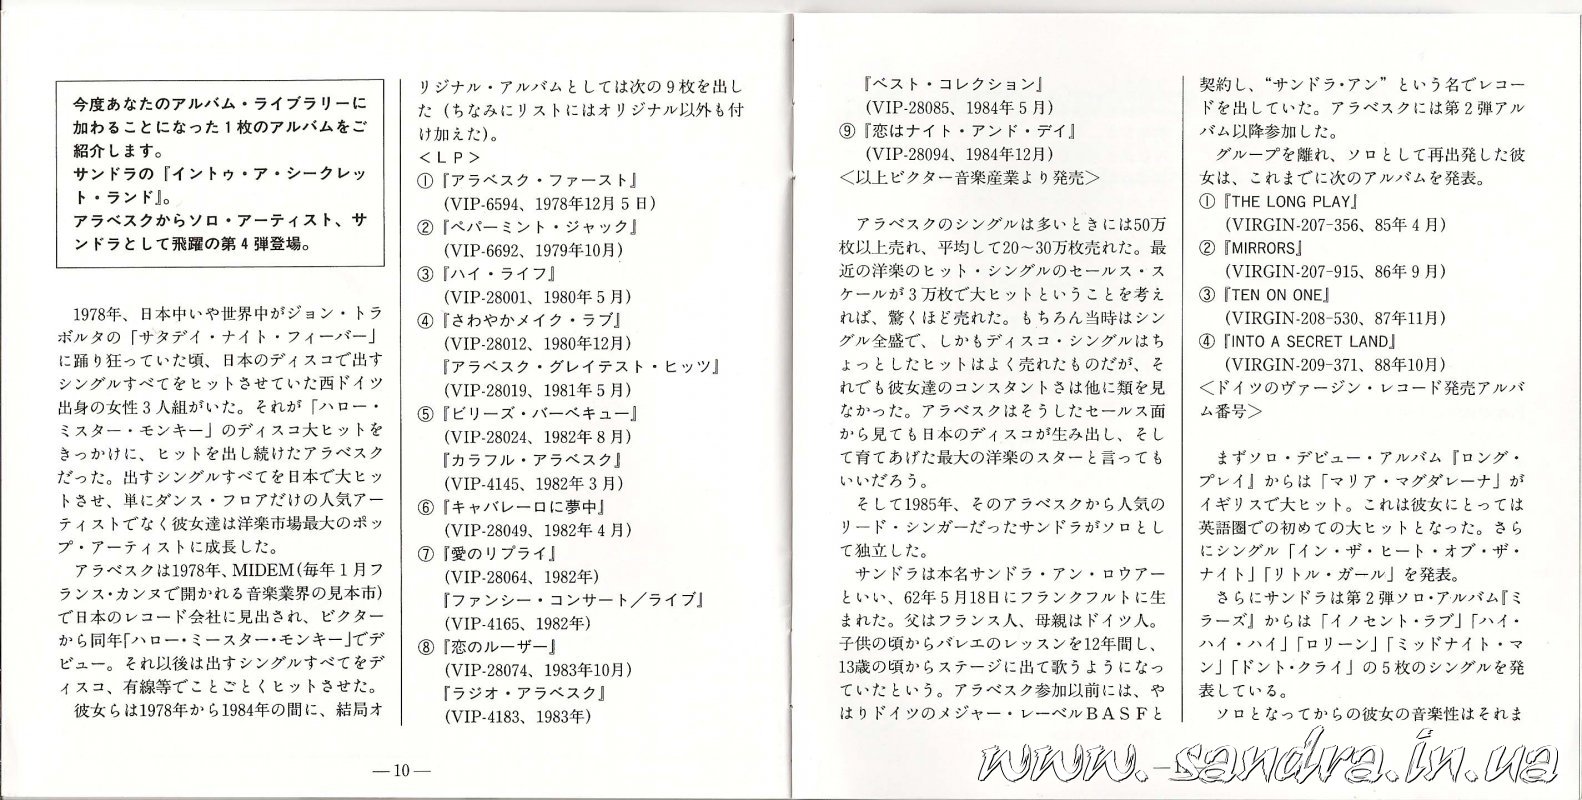 今度あなたのアルバム・ライブラリーに
加わることになった1枚のアルバムをご
紹介します。
サンドラの『イントゥ・ア・シークレッ
ト・ランド』。
アラベスクからソロ・アーティスト、サ
ンドラとして飛躍の第4弾登場。
1978年、日本中いや世界中がジョン・トラ
ボルタの「サタデイ・ナイト・フィーバー」
に踊り狂っていた頃、日本のディスコで出す
シングルすべてをヒットさせていた西ドイツ
出身の女性3人組がいた。それが「ハロー・
ミスター・モンキー」のディスコ大ヒットを
きっかけに、ヒットを出し続けたアラベスク
だった。出すシングルすべてを日本で大ヒッ
トさせ、単にダンス・フロアだけの人気アー
ティストでなく彼女達は洋楽市場最大のポッ
プ・アーティストに成長した。
アラベスクは1978年、MIDEM(毎年1月フ
ランス・カンヌで開かれる音楽業界の見本市)
で日本のレコード会社に見出され、ビクター
から同年「ハロー・ミースター・モンキー」でデ
ビュー。それ以後は出すシングルすべてをデ
ィスコ、有線等でことごとくヒットさせた。
彼女らは1978年から1984年の間に、結局オ
リジナル・アルバムとしては次の9枚を出し
た(ちなみにリストにはオリジナル以外も付
け加えた)。
<LP>
①『アラベスク・ファースト』
(VIP-6594、1978年12月5日)
②『ペパーミント・ジャック』
(VIP-6692、1979年10月)
③『ハイ・ライフ』
(VIP-28001、1980年5月)
④『さわやかメイク・ラブ』
(VIP-28012、1980年12月)
『アラベスク・グレイテスト・ヒッツ』
(VIP-28019、1981年5月)
⑤『ビリーズ・バーベキュー』
(VIP-28024、1982年8月)
『カラフル・アラベスク』
(VIP-4145、1982年3月)
⑥『キャバレーロに夢中』
(VIP-28049、1982年4月)
⑦『愛のリプライ』
(VIP-28064、1982年)
『ファンシー・コンサート/ライブ』
(VIP-4165、1982年)
⑧『恋のルーザー』
(VIP-28074、1983年10月)
『ラジオ・アラベスク』
(VIP-4183、1983年)
—10—
『ベスト・コレクション』
(VIP-28085、1984年5月)
⑨『恋はナイト・アンド・デイ』
(VIP-28094、1984年12月)
<以上ビクター音楽産業より発売>
アラベスクのシングルは多いときには50万
枚以上売れ、平均して20~30万枚売れた。最
近の洋楽のヒット・シングルのセールス・ス
ケールが3万枚で大ヒットということを考え
れば、驚くほど売れた。もちろん当時はシン
グル全盛で、しかもディスコ・シングルはち
ょっとしたヒットはよく売れたものだが、そ
れでも彼女達のコンスタントさは他に類を見
なかった。アラベスクはそうしたセールス面
から見ても日本のディスコが生み出し、そし
て育てあげた最大の洋楽のスターと言っても
いいだろう。
そして1985年、そのアラベスクから人気の
リード・シンガーだったサンドラがソロとし
て独立した。
サンドラは本名サンドラ・アン・ロウアー
といい、62年5月18日にフランクフルトに生
まれた。父はフランス人、母親はドイツ人。
子供の頃からバレエのレッスンを12年間し、
13歳の頃からステージに出て歌うようになっ
ていたという。アラベスク参加以前には、や
はりドイツのメジャー・レーベルBASFと
契約し、“サンドラ・アン”という名でレコー
ドを出していた。アラベスクには第2弾アル
バム以降参加した。
グループを離れ、ソロとして再出発した彼
女は、これまでに次のアルバムを発表。
①『THE LONG PLAY』
(VIRGIN-207-356、85年4月)
②『MIRRORS』
(VIRGIN-207-915、86年9月)
③『TEN ON ONE』
(VIRGIN-208-530、87年11月)
④『INTO A SECRET LAND』
(VIRGIN-209-371、88年10月)
<ドイツのヴァージン・レコード発売アルバ
ム番号>
まずソロ・デビュー・アルバム『ロング・
プレイ』からは「マリア・マグダレーナ」が
イギリスで大ヒット。これは彼女にとっては
英語圏での初めての大ヒットとなった。さら
にシングル「イン・ザ・ヒート・オブ・ザ・
ナイト」「リトル・ガール」を発表。
さらにサンドラは第2弾ソロ・アルバム『ミ
ラーズ』からは「イノセント・ラブ」「ハイ・
ハイ・ハイ」「ロリーン」「ミッドナイト・マ
ン」「ドント・クライ」の5枚のシングルを発
表している。
ソロとなってからの彼女の音楽性はそれま
www.sandra.in.ua